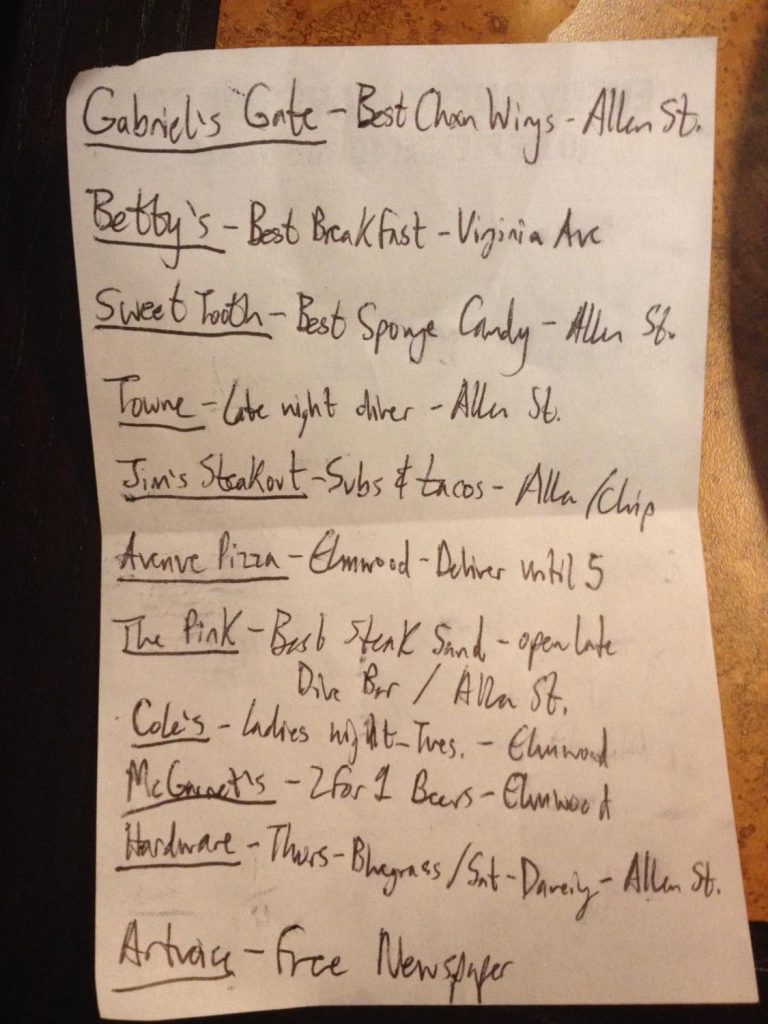 Gabriel's Gate - Best Chxn Wings - Allen St.
Betty's - Best Breakfast - Virginia Ave
Sweet Tooth - Best Sponge Candy - Allen St.
Towne - Late night diner - Allen St.
Jim's Steakout - Subs & tacos - Allen / Chip
Avenue Pizza - Elmwood - Deliver until 5
The Pink - Best Steak Sand - open late
Dive Bar / Allen St.
Cole's - Ladies night - Tues. - Elmwood
- 2 for 1 Beers - Elmwood
Hardware - Thurs - Bluegrass / Sat - Dancing - Allen St.
Artvoice - Free Newspaper